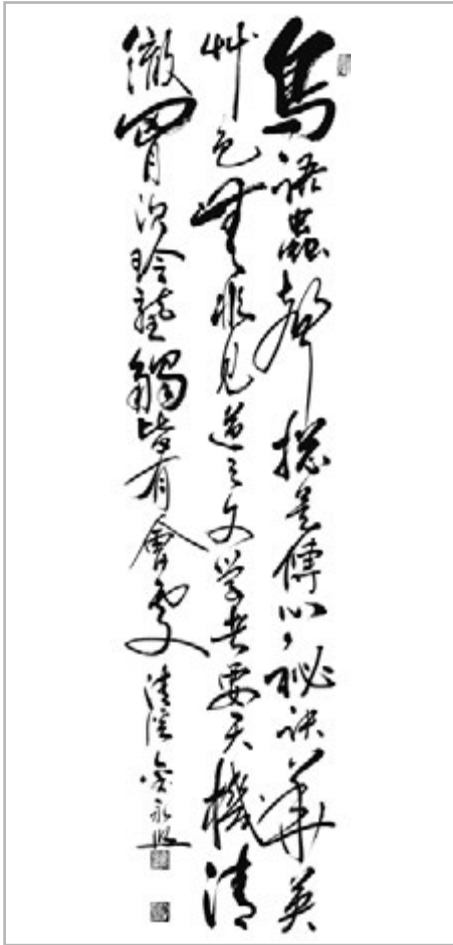 鳥語蟲聲摠是傳心之祕訣華英
艸色無非見道之文学者要天機清
徹胷次玲瓏觸皆有會處 清溪 金永